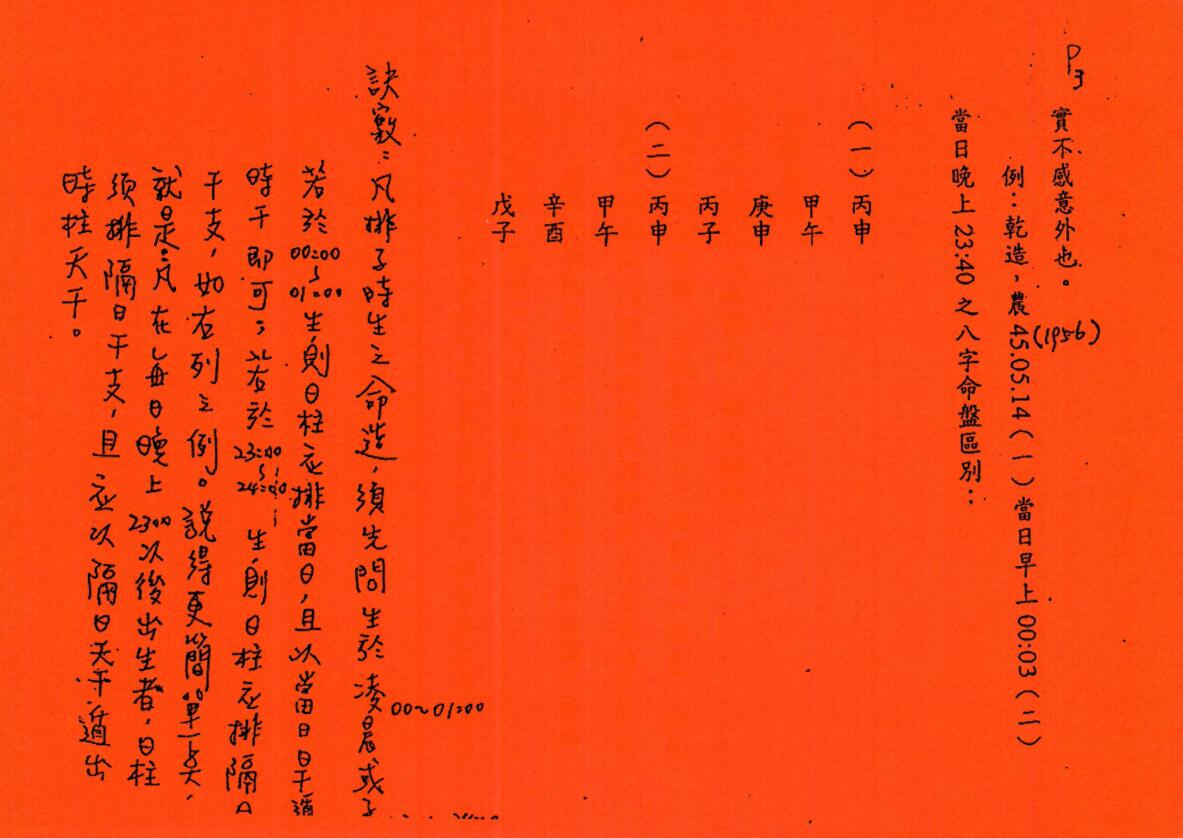 P3
實不感意外也。
例:乾造,農45.05.14(一)當日早上00:03(二)
(1956)
當日晚上23:40之八字命盤區別:
(一)丙申
甲午
庚申
丙子
(二)丙申
甲午
辛酉
戊子
訣竅:凡排子時生之命造,須先問生於凌晨或子
00~01:00
若於00:00~01:00生,則日柱应排當日,且以當日日干遁
時干即可;若於23:00~24:00生,則日柱应排隔日
干支,如右列之例。說得更簡單一点,
就是:凡在每日晚上23:00以後出生者,日柱
須排隔日干支,且应以隔日天干遁出
時柱天干。